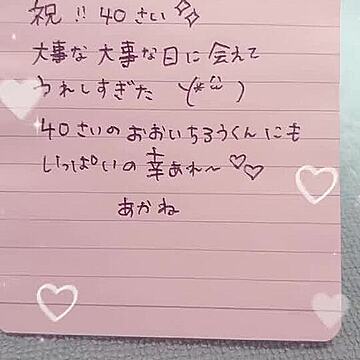 祝!! 40さい✨
大事な大事な日に会えて
うれしすぎた ヽ(*^^)
40さいのおおいちろうくんにも
いっぱいの幸あれ〜♡♡
あかね